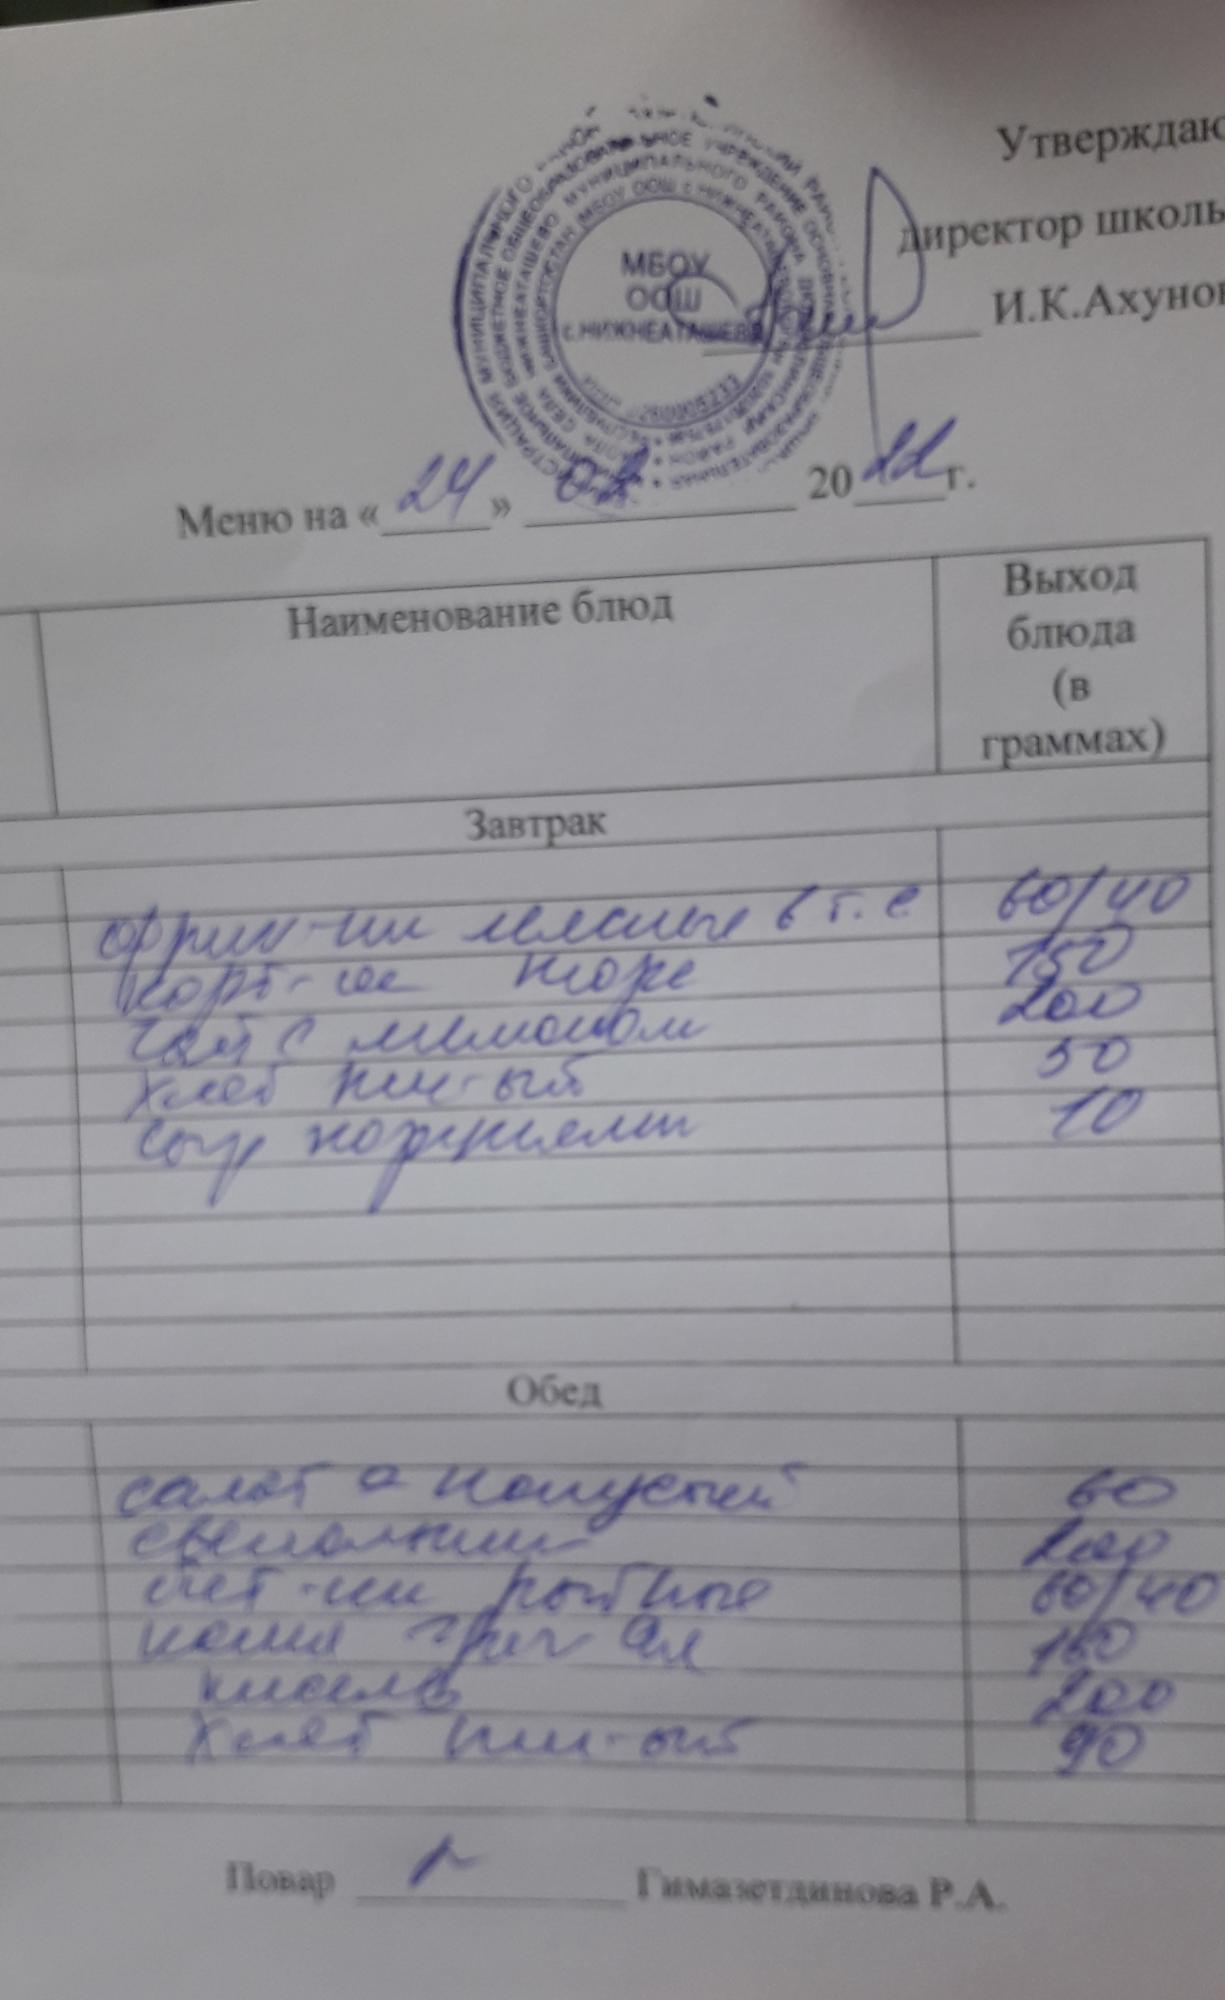 Утверждаю
директор школы
И.К.Ахунов
МБОУ
ООШ
с.НИЖНЕАТАШЕВО
Меню на «24» 02 2022г.
Наименование блюд
Выход
блюда
(в
граммах)
Завтрак
фрик-ки мясные в т.с 60/40
карт-ое пюре 150
чай с лимоном 200
хлеб пш-ый 50
сыр порциями 10
Обед
салат а капустый 60
свекольник 200
кот-ки рыбные 60/40
каша греч ая 150
кисель 200
хлеб пш-ый 90
Повар Гимазетдинова Р.А.